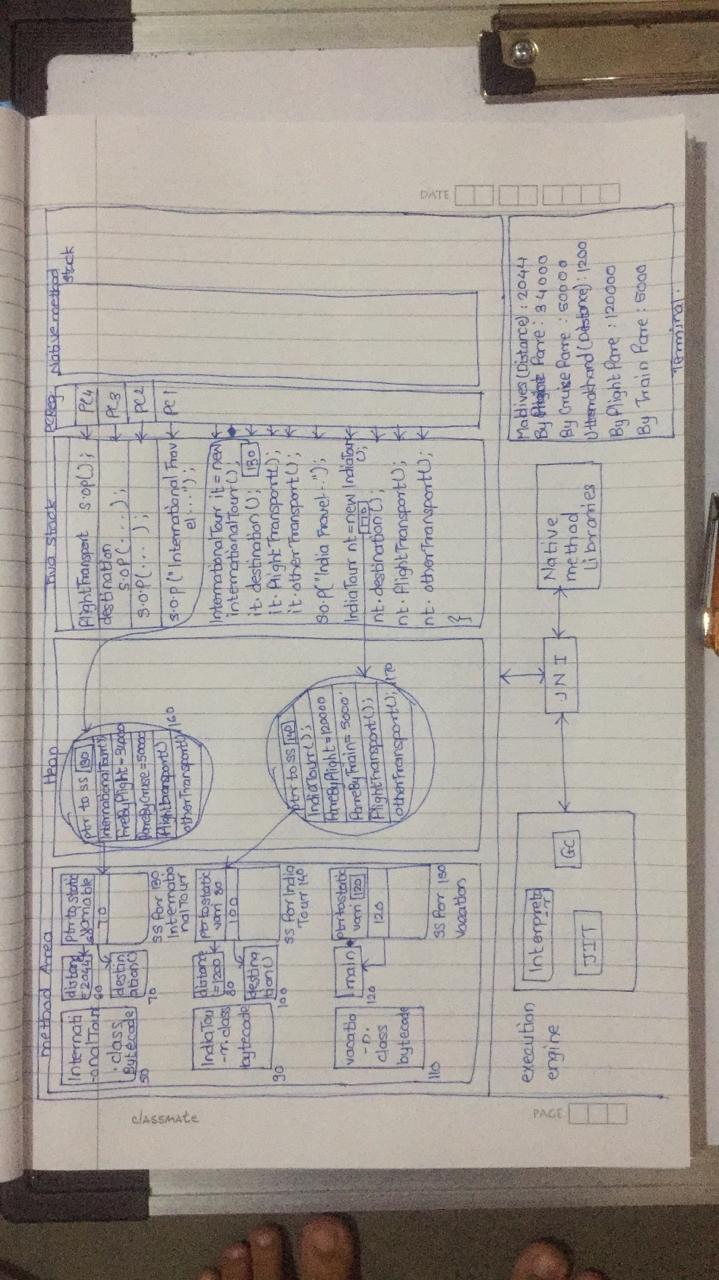 DATE
method Area
Internati
-onalTour
.class
Bytecode
50
distance
=2044
60
destin
ation()
70
ptr to static
variable
70
SS for 130
Internatio
nalTour
IndiaTou
-r.class
bytecode
90
distance
=1200
80
destina
tion()
100
ptr to static
vari 80
100
SS for India
Tour 140
vacatio
-n.
class
bytecode
110
main
120
ptr to static
vari 120
120
SS for 150
vacation
Heap
ptr to SS 130
InternationalTour()
FareByFlight=34000
FareByCruise=50000
FlightTransport()
otherTransport()
160
ptr to SS 140
IndiaTour();
FareByFlight=120000
FareByTrain=5000;
FlightTransport();
otherTransport();
170
Java Stack
FlightTransport S.op();
destination
S.op(....);
S.O.P(... );
S.O.P("International Trav
el...");
InternationalTour it = new
internationalTour();
it.destination(); 130
it.FlightTransport();
it.otherTransport();
So.p("India Travel..");
IndiaTour nt=new IndiaTour
();
nt.destination();
nt.FlightTransport();
nt.otherTransport();
}
PCReg
PC4
PC3
PC2
PC1
Native method
Stack
execution
engine
Interprete
-r
JIT
GC
JNI
Native
method
Libraries
Maldives (Distance) : 2044
By Flight Fare : 34000
By Cruise Fare : 50000
Uttarakhand (Distance) : 1200
By Flight Fare : 120000
By Train Fare : 5000
Terminal.
classmate
PAGE